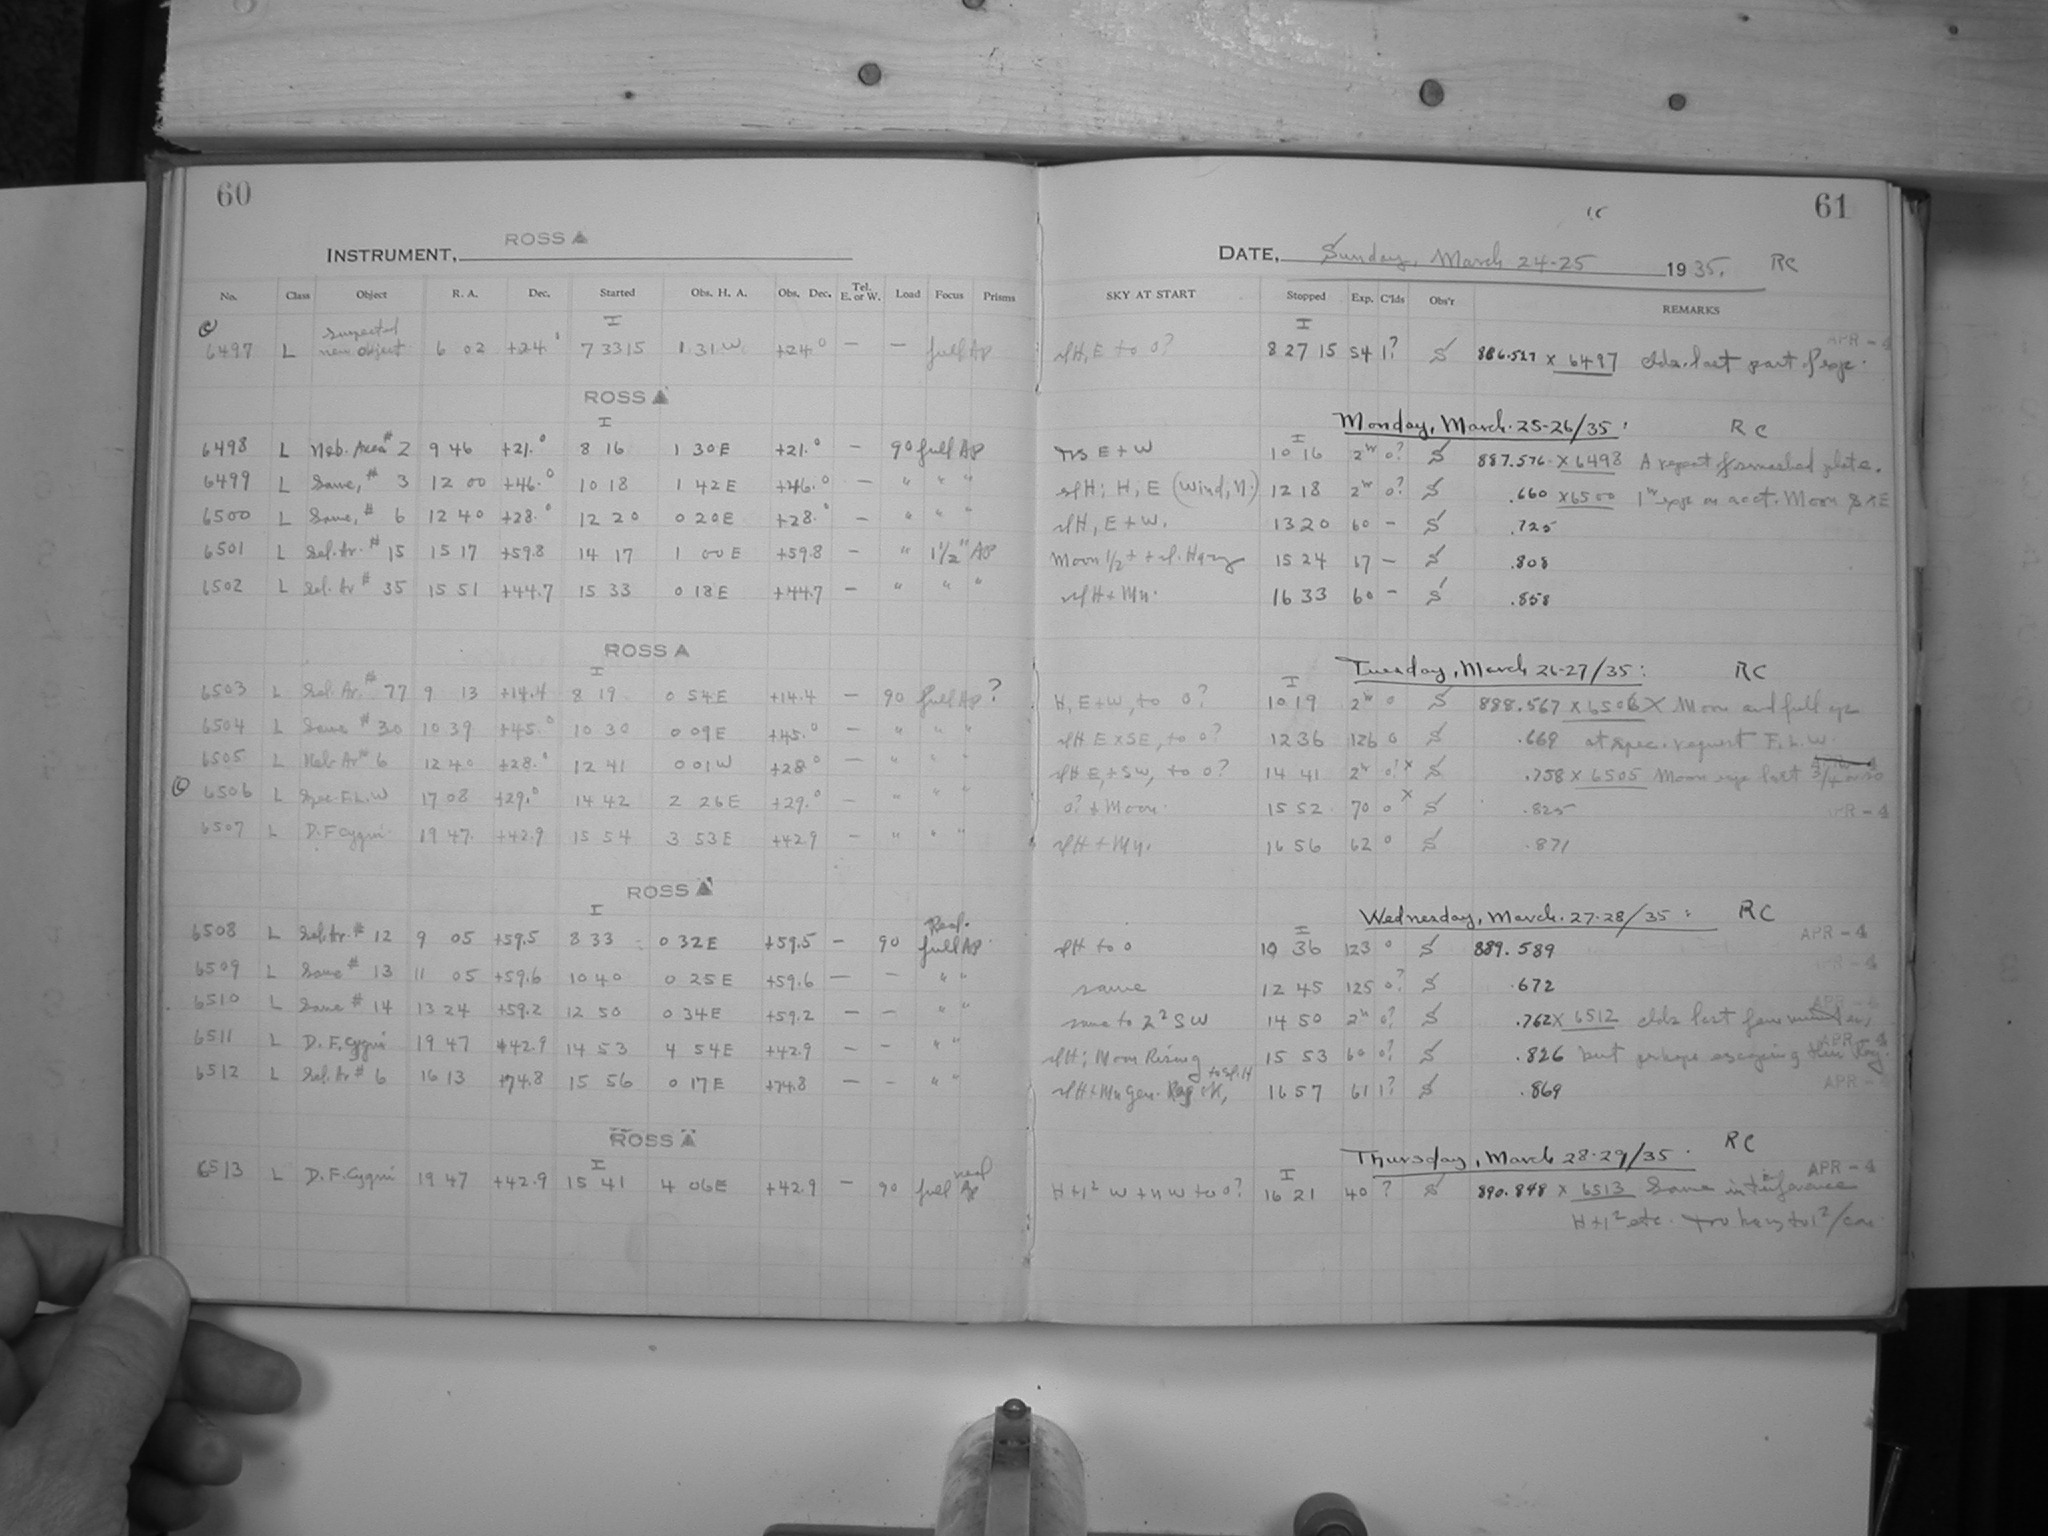 60
ROSS A
INSTRUMENT,
No. Class Object R. A. Dec. Started Obs. H. A. Obs. Dec. Tel. E. or W. Load Focus Prisms
I
6497 L suspected new object 6 02 +24° 7 33 15 1 31 W +24° — — full Ap
ROSS A
I
6498 L Neb. Area # 2 9 46 +21.° 8 16 1 30 E +21.° — 90 full Ap
6499 L Same, # 3 12 00 +46.° 10 18 1 42 E +46.° — " " "
6500 L Same, # 6 12 40 +28.° 12 20 0 20 E +28.° — " " "
6501 L Sel. Ar. # 15 15 17 +59.8 14 17 1 00 E +59.8 — " 1½" Ap
6502 L Sel. Ar # 35 15 51 +44.7 15 33 0 18 E +44.7 — " " "
ROSS A
I
6503 L Sel. Ar. # 77 9 13 +14.4 8 19 0 54 E +14.4 — 90 full Ap ?
6504 L Same # 30 10 39 +45.° 10 30 0 09 E +45.° — " " "
6505 L Neb. Ar # 6 12 40 +28.° 12 41 0 01 W +28° — " " "
6506 L Spec. F.L.W 17 08 +29.° 14 42 2 26 E +29.° — " " "
6507 L D. F Cygni 19 47. +42.9 15 54 3 53 E +42.9 — " " "
ROSS A
I
6508 L Sel. Ar. # 12 9 05 +59.5 8 33 0 32 E +59.5 — 90 Real. full Ap
6509 L Same # 13 11 05 +59.6 10 40 0 25 E +59.6 — — " "
6510 L Same # 14 13 24 +59.2 12 50 0 34 E +59.2 — — " "
6511 L D. F. Cygni 19 47 +42.9 14 53 4 54 E +42.9 — — " "
6512 L Sel. Ar # 6 16 13 +74.8 15 56 0 17 E +74.8 — — " "
ROSS A
I
6513 L D. F. Cygni 19 47 +42.9 15 41 4 06 E +42.9 — 90 full real Ap
61
DATE, Sunday, March 24-25 1935. RC
SKY AT START Stopped Exp. C'lds Obs'r REMARKS
I
APR - 4
slH, E to 0? 8 27 15 54 1? S 886.527 x 6497 clds. last part of exp.
Monday, March. 25-26/35: RC
I
E + W 10 16 2 0? S 887.576 x 6498 A repeat of smashed plate.
slH; H, E (Wind, N.) 12 18 2 0? S .660 x 6500 exp on acct. Moon
slH, E + W. 13 20 60 — S .725
Moon ½ + + sl. Hazy 15 24 — S .808
slH + Mn. 16 33 60 — S .858
Tuesday, March 26-27/35: RC
I
H, E + W, to 0? 10 19 2 0 S 888.567 x 6506 X Moon and full ap
slH E x SE, to 0? 12 36 126 0 S .669 at spec. request F. L. W.
slH E, + SW, to 0? 14 41 2 0? x S .758 x 6505 Moon exp last ¾ or so
0? + Moon. 15 52 70 0 x S .825 APR - 4
slH + Mn. 16 56 62 0 S .871
Wednesday, March. 27-28/35: RC
I
APR - 4
slH to 0 10 36 123 0 S 889.589
same 12 45 125 0? S .672
same to 2² SW 14 50 2 0? S .762 x 6512 clds last few minutes,
APR - 4
slH; Moon Rising 15 53 60 0? S .826 but perhaps escaping this Reg.
APR - 4
slH + Mn gen. Reg ok, to sl. H 16 57 61 1? S .869
APR - 4
Thursday, March 28-29/35. RC
I
APR - 4
H + 1² W + NW to 0? 16 21 40 ? S 890.848 x 6513 Some interference
H + 1² etc.